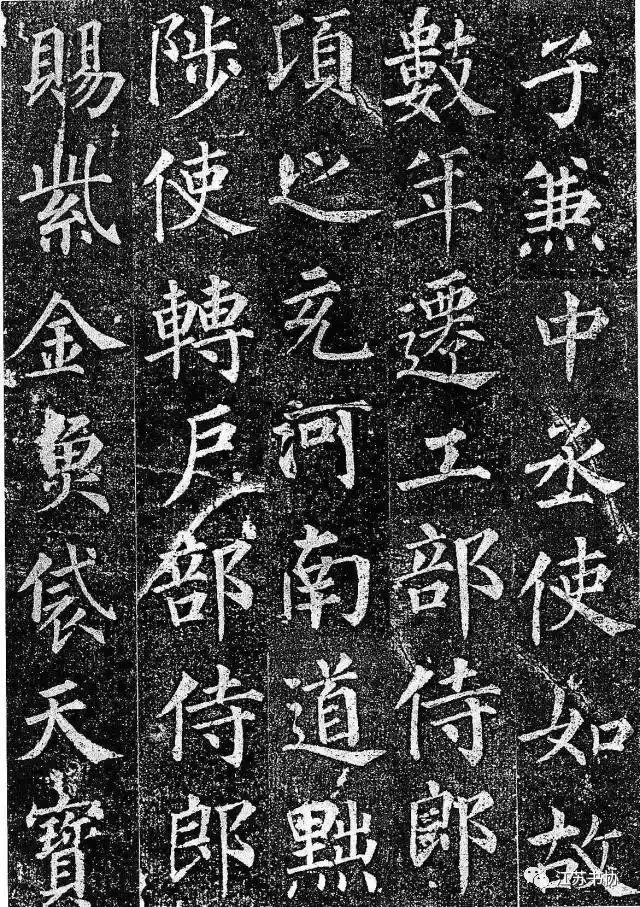 子兼中丞使如故
數年遷工部侍郎
項之充河南道黜
陟使轉戶部侍郎
賜紫金魚袋天寶
江苏书协